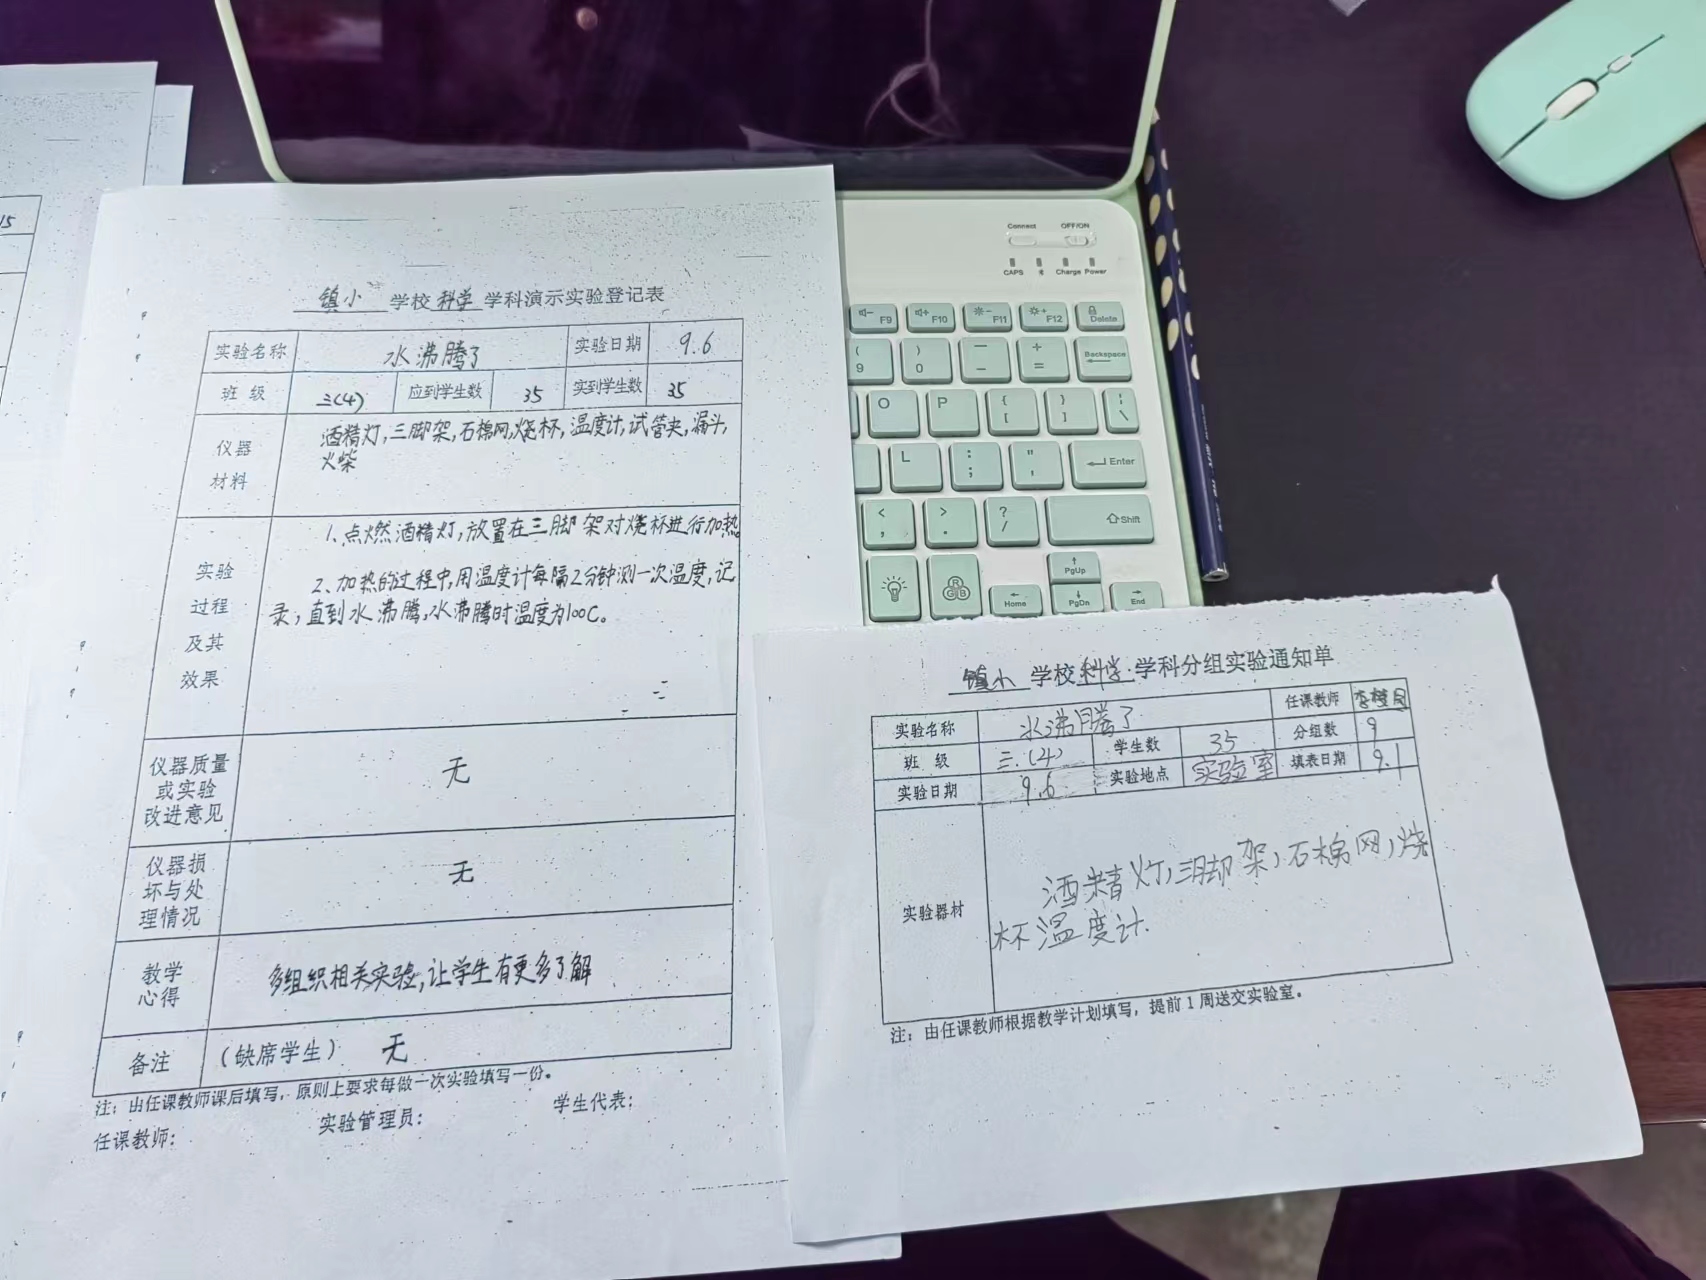 15
镇小 学校 科学 学科演示实验登记表
实验名称 水沸腾了 实验日期 9.6
班 级 三(4) 应到学生数 35 实到学生数 35
仪器
材料
酒精灯,三脚架,石棉网,烧杯,温度计,试管夹,漏斗,
火柴
实验
过程
及其
效果
1、点燃酒精灯,放置在三脚架对烧杯进行加热。
2、加热的过程中,用温度计每隔2分钟测一次温度,记
录,直到水沸腾,水沸腾时温度为100C。
仪器质量
或实验
改进意见
无
仪器损
坏与处
理情况
无
教学
心得
多组织相关实验,让学生有更多了解
备注 (缺席学生) 无
注:由任课教师课后填写,原则上要求每做一次实验填写一份。
任课教师: 实验管理员: 学生代表:
镇小 学校 科学 学科分组实验通知单
实验名称 水沸腾了 任课教师
班 级 三.(4) 学生数 35 分组数 9
实验日期 9.6 实验地点 实验室 填表日期 9.1
实验器材
酒精灯,三脚架,石棉网,烧
杯温度计.
注:由任课教师根据教学计划填写,提前1周送交实验室。
Connect OFF/ON
CAPS Charge Power
F9 F10 F11 F12 Delete
( 9 ) 0 — _ + = Backspace
O P { [ } ] ¦ \
L : ; " , Enter
< , > . ? / Shift
RGB PgUp
Home PgDn End